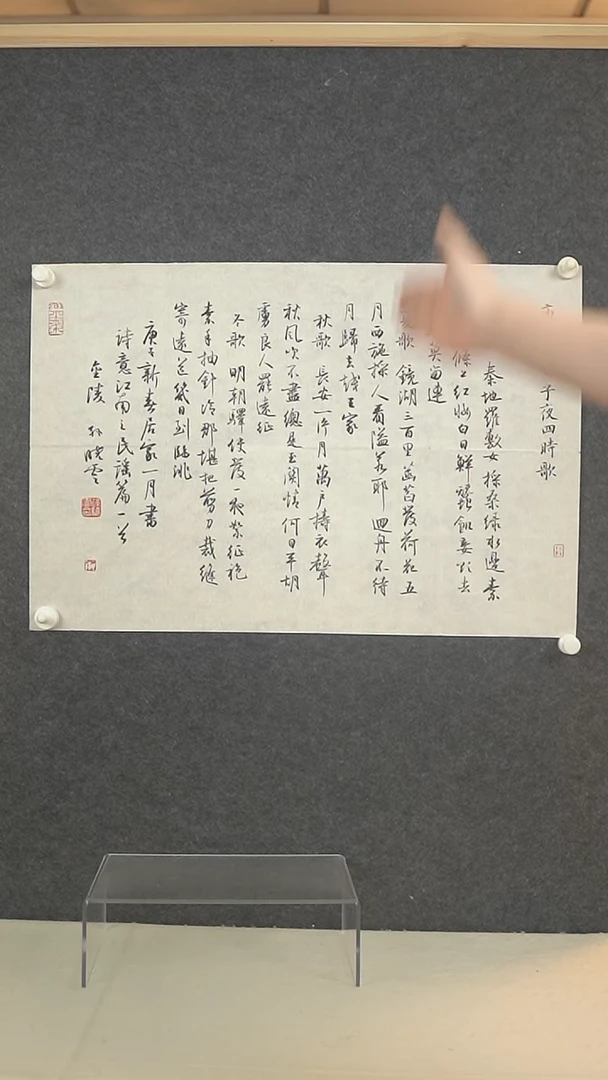 子夜四時歌
秦地羅敷女採桑綠水邊素
條上紅妝白日鮮蠶飢妾欲去
莫留連
夏歌 鏡湖三百里菡萏發荷花五
月西施採人看隘若耶迴舟不待
月歸去越王家
秋歌 長安一片月萬戶擣衣聲
秋風吹不盡總是玉關情何日平胡
虜良人罷遠征
冬歌 明朝驛使發一夜絮征袍
素手抽針冷那堪把剪刀裁縫
寄遠道幾日到臨洮
庚子新春居家一月書
詩意江南之民謠篇一首
金陵 孫曉雲